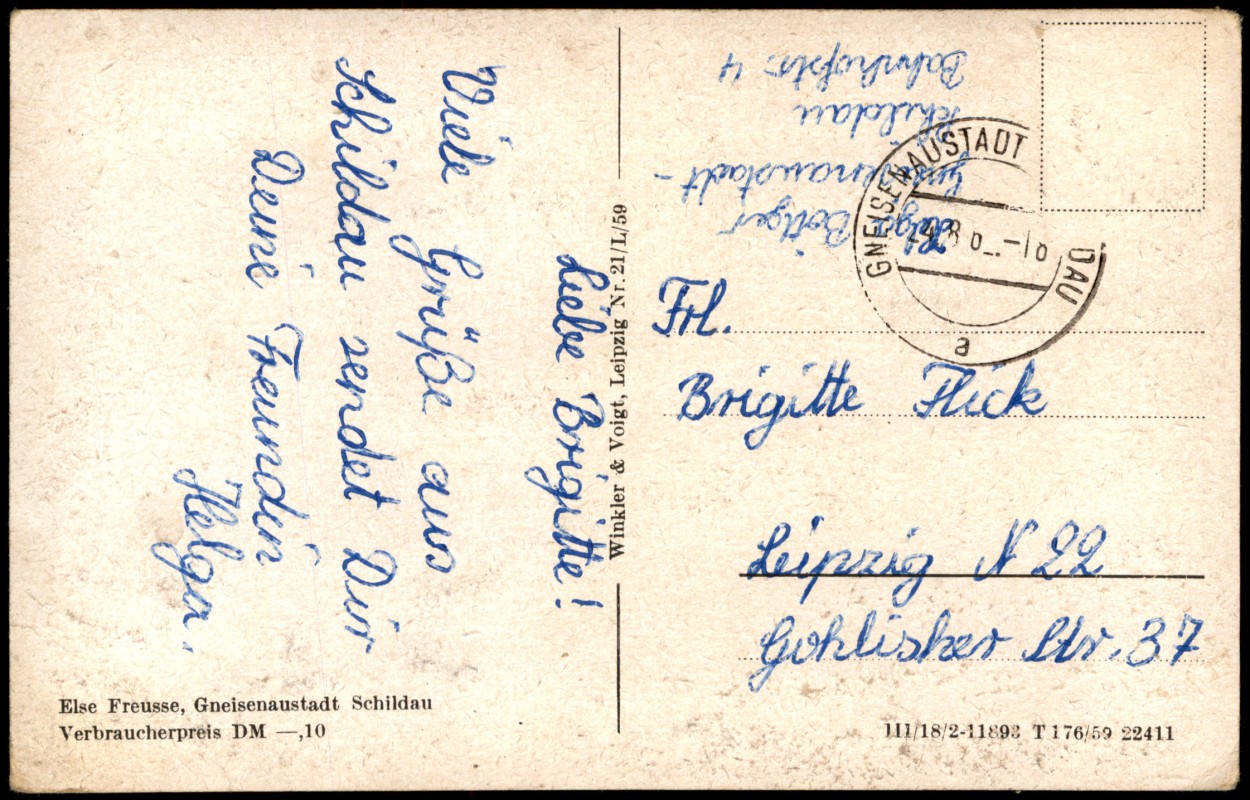 Liebe Brigitte!
Viele Grüße aus
Schildau sendet Dir
Deine Freundin
Helga.
Else Freusse, Gneisenaustadt Schildau
Verbraucherpreis DM —,10
Winkler & Voigt, Leipzig Nr. 21/L/59
Helga Böttger
Gneisenaustadt -
Schildau
Bahnhofstr. 4
GNEISENAUSTADT
DAU
a
Frl.
Brigitte Flick
Leipzig N 22
Gohlisher Str. 37
III/18/2-11893 T 176/59 22411